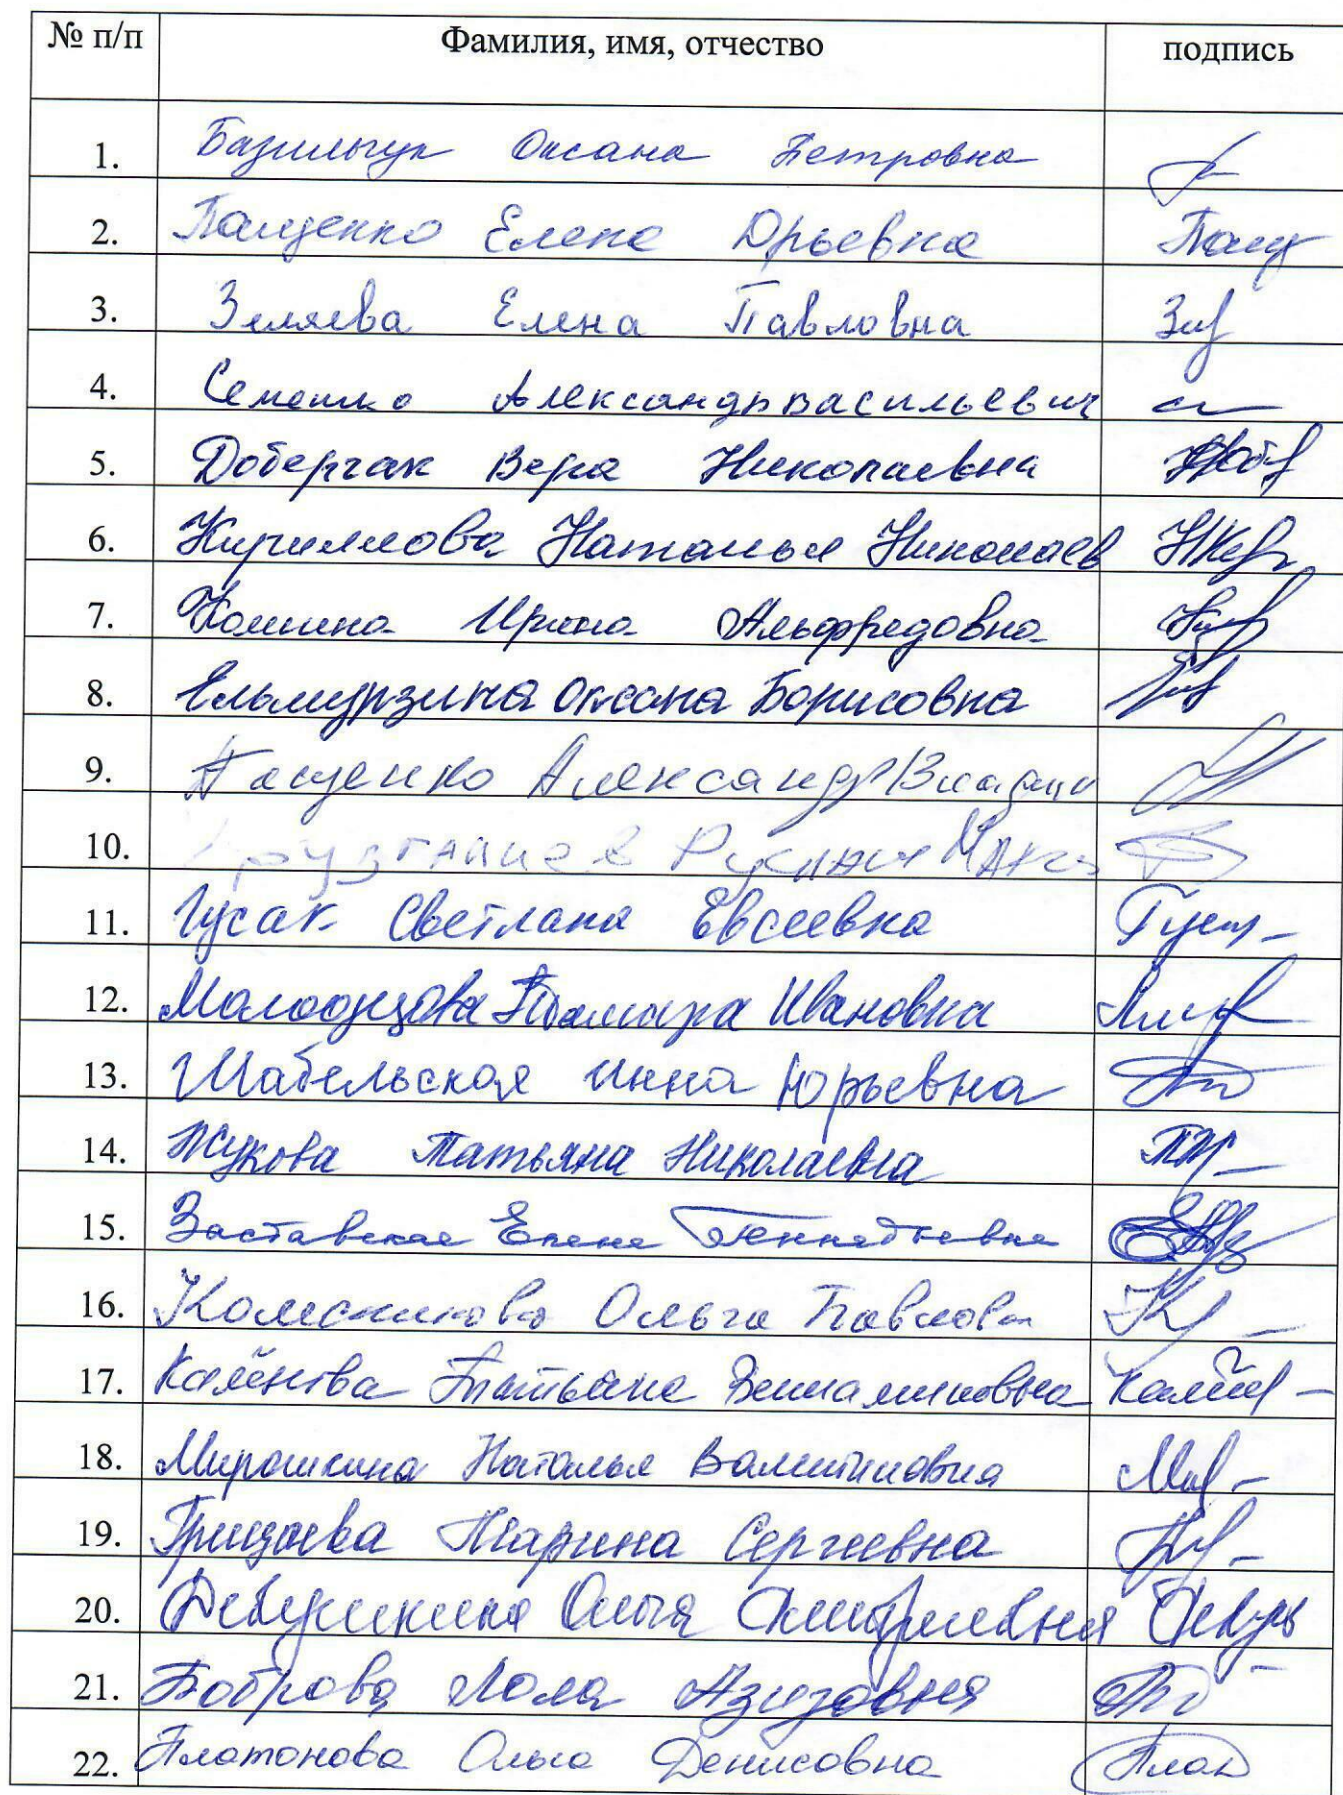 № п/п Фамилия, имя, отчество подпись
1. Базильчук Оксана Петровна
2. Пащенко Елена Юрьевна Пащ
3. Зиляева Елена Павловна
4. Семешко Александр Васильевич
5. Доберчак Вера Николаевна
6. Кириллова Наталья Николаев
7. Комина Ирина Альфредовна
8. Ельмурзина Оксана Борисовна
9. Пащенко Александр Владим
10. Руслан
11. Гусак Светлана Евсеевна
12. Молодцова Тамара Ивановна
13. Шабельская Инна Юрьевна
14. Жукова Татьяна Николаевна
15. Заставская Елена Геннадьевна
16. Колесникова Ольга Павловн
17. Калёнова Татьяна Вениаминовна
18. Мирошкина Наталья Валентиновна
19. Грицаева Марина Сергеевна
20. Девушкина Ольга Дмитриевна
21. Боброва Лола Азизовна
22. Платонова Ольга Денисовна Плат